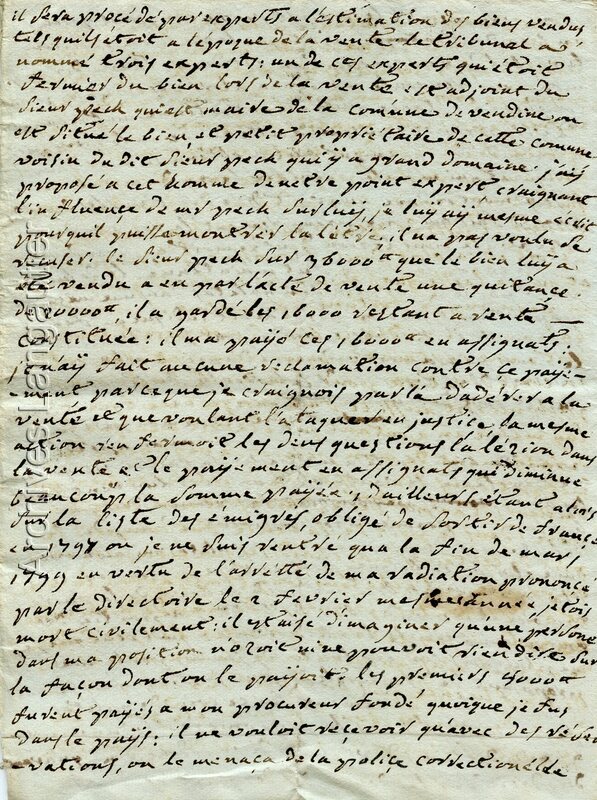 il sera procédé par experts a l'éstimation des biens vendus
tels quils etoit a lépoque de la vente le tribunal a
nommé trois experts; un de ces experts qui étoit
fermier du bien lors de la vente est adjoint du
sieur pech qui est maire de la comune de vendine ou
est situé le bien, et petit proprietaire de cette comune
voisin du dit sieur pech qui y a grand domaine. j'aij
proposé a cet homme de netre point expert, craignant
linfluence de mr pech sur luij, je luij aij mesme ecrit
pourquil puisse montrer la letre, il na pas voulu se
recuser. le sieur pech sur 36000# que le bien luij a
été vendu a en par lacte de vente une quitance
de 20000#, il a gardé les 16000 restant a rente
constituée: il ma paijé ces 16000# en assignats.
je n'aij fait aucune reclamation contre ce paije-
-ment parceque je craignois par la d'adérer a la
vente et que voulant l'ataquer en justice, la mesme
action renfermoit les deus questions la lézion dans
la vente et le paijement en assignats qui diminue
beaucoup la somme paijée; d'ailleurs étant alors
sur la liste des émigrés, oblige de sortir de france
en 1797 ou je ne suis rentré qua la fin de mars
1799 en vertu de l'arrétté de ma radiation prononcé
par le directoire le 2 fevrier mesme année, jetois
mort civilement: il est aisé d'imaginer quune persone
dans ma position nozoit ni ne pouvoit rien dire sur
la façon dont on le paijoit. les premiers
furent paijés a mon procureur fondé quoique je fus
dans le paijs: il ne vouloit reçevoir quavec des réser
-vations, on le menaça de la poliçe correctionelle
Archives Languedoc